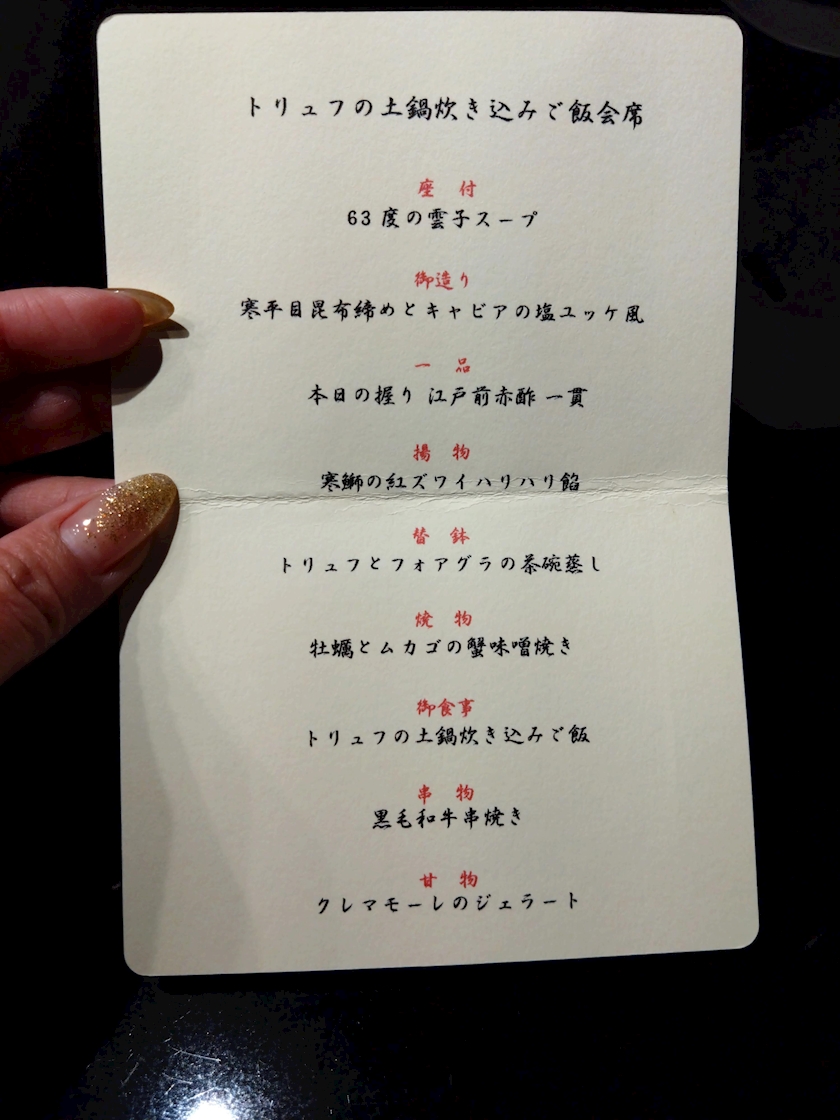 トリュフの土鍋炊き込みご飯会席
座 付
63 度の雲子スープ
御造り
寒平目昆布締めとキャビアの塩ユッケ風
一 品
本日の握り 江戸前赤酢 一貫
揚 物
寒鰤の紅ズワイハリハリ餡
替 鉢
トリュフとフォアグラの茶碗蒸し
焼 物
牡蠣とムカゴの蟹味噌焼き
御食事
トリュフの土鍋炊き込みご飯
串 物
黒毛和牛串焼き
甘 物
クレマモーレのジェラート